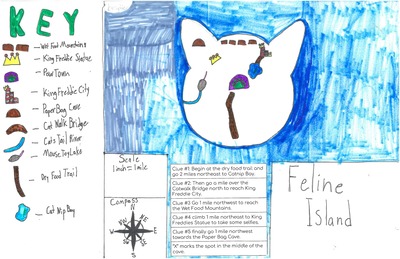 KEY
Wet Foot Mountains
King Freddie Statue
Paw Town
King Freddie City
Paper Bag Cave
Cat Walk Bridge
Cats Tail River
Mouse Toy Lake
Dry Food Trail
Cat Nip Bay
Scale
1inch = 1mile
Compass
N
W
E
S
Clue #1: Begin at the dry food trail and
go 2 miles northeast to Catnip Bay.
Clue #2: Then go a mile over the
Catwalk Bridge north to reach King
Freddie City.
Clue #3 Go 1 mile northwest to reach
the Wet Food Mountains.
Clue #4 climb 1 mile northeast to King
Freddies Statue to take some selfies.
Clue #5 finally go 1 mile northwest
towards the Paper Bag Cave.
"X" marks the spot in the middle of the
cave.
Feline
Island